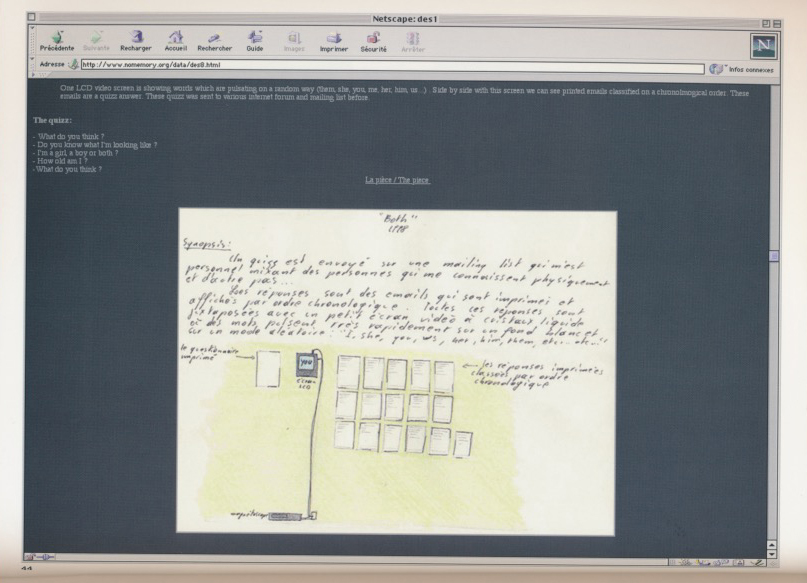 Netscape: des1
Précédente Suivante Recharger Accueil Rechercher Guide Images Imprimer Sécurité Arrêter
N
Adresse : http://www.nomemory.org/data/des8.html Infos connexes
One LCD video screen is showing words which are pulsating on a random way (them, she, you, me, her, him, us ...) . Side by side with this screen we can see printed emails classified on a chronolmogical order. These
emails are a quizz answer. These quizz was sent to various internet forum and mailing list before.
The quizz:
- What do you think ?
- Do you know what I'm looking like ?
- I'm a girl, a boy or both ?
- How old am I ?
-What do you think ?
La pièce / The piece
"Both"
1998
Synopsis:
Un quizz est envoyé sur une mailing list qui m'est
personnel mixant des personnes qui me connaissent physiquement
et d'autre pas...
Les réponses sont des emails qui sont imprimei et
affichés par ordre chronologique. Toutes ces réponses sont
juxtaposées avec un petit écran vidéo à cristaux liquide
où des mots pulsent très rapidement sur un fond blanc et
sur un mode aléatoire: "I, she, you, us, her, him, them, etc... etc..."
le questionnaire
imprimé
you
écran
LCD
les réponses imprimées
classées par ordre
chronologique
magnétoscope
44